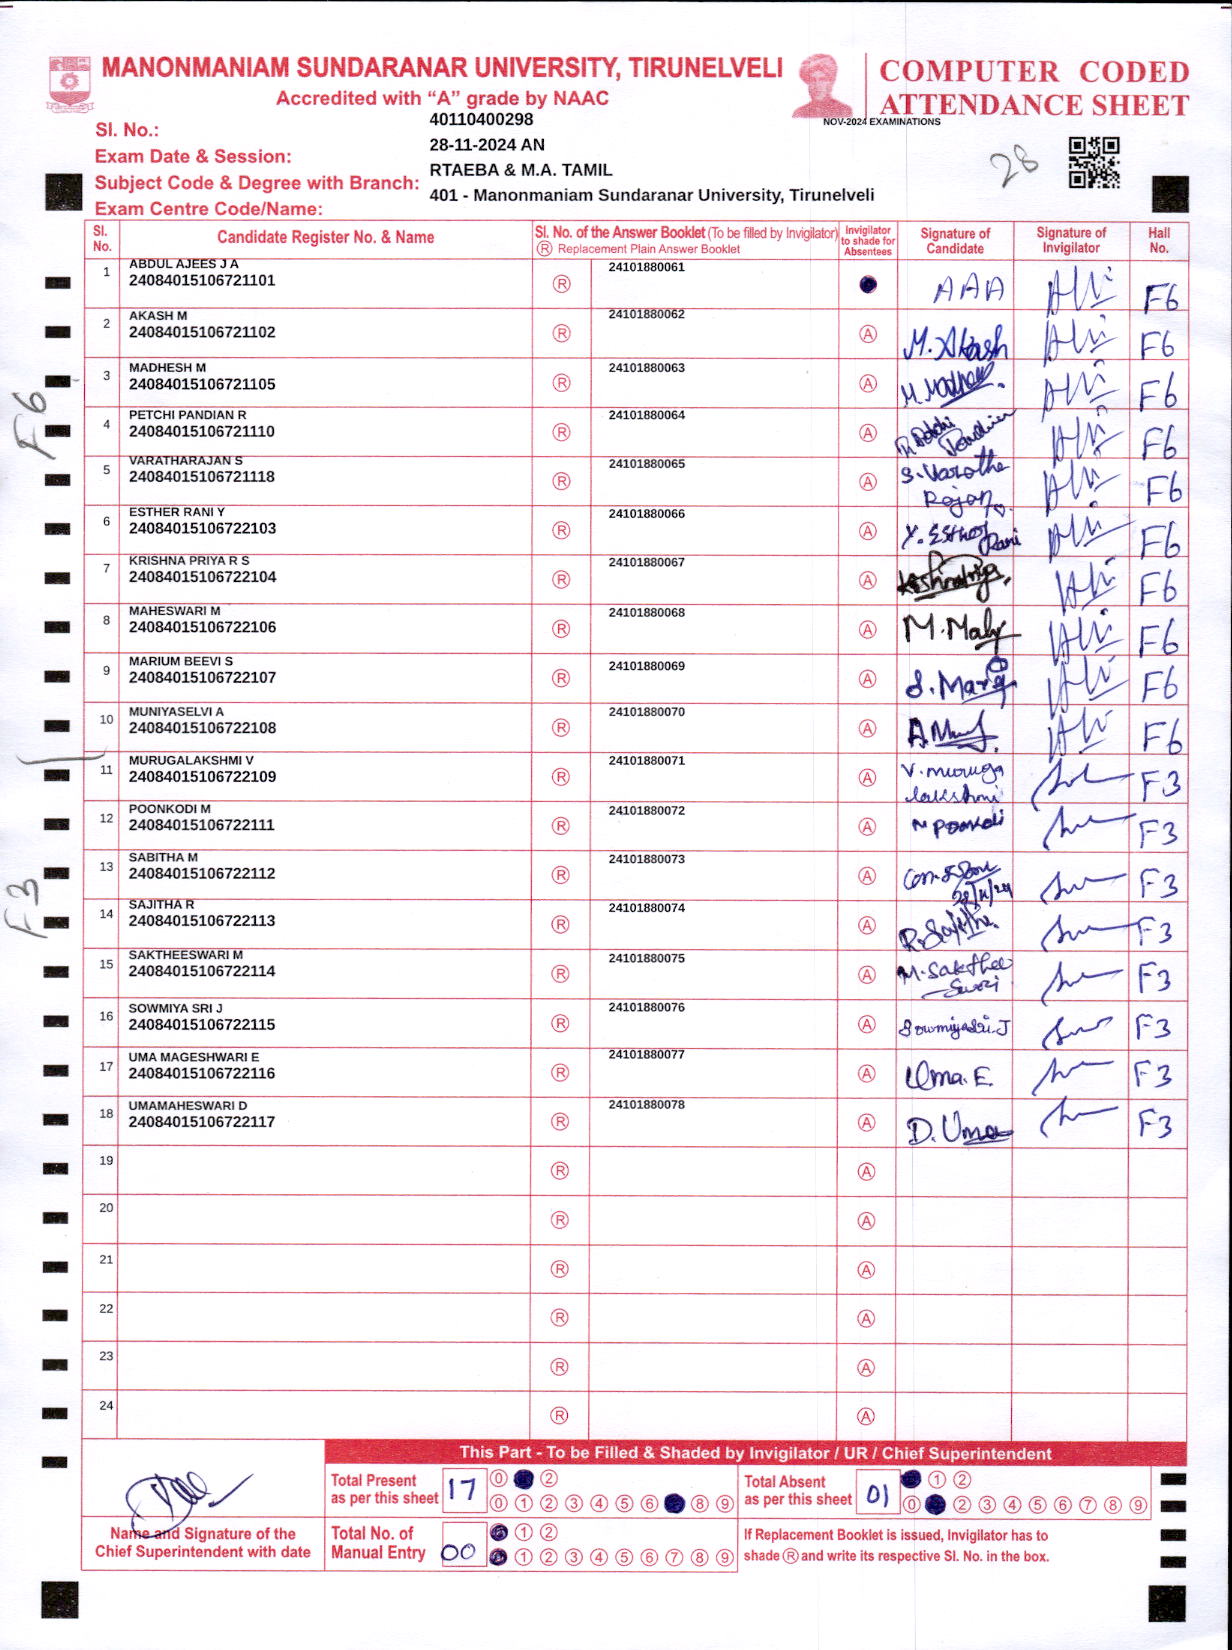 MANONMANIAM SUNDARANAR UNIVERSITY, TIRUNELVELI
Accredited with “A” grade by NAAC
COMPUTER CODED
ATTENDANCE SHEET
NOV-2024 EXAMINATIONS
Sl. No.: 40110400298
Exam Date & Session: 28-11-2024 AN
Subject Code & Degree with Branch: RTAEBA & M.A. TAMIL
Exam Centre Code/Name: 401 - Manonmaniam Sundaranar University, Tirunelveli
28
Sl. No. Candidate Register No. & Name Sl. No. of the Answer Booklet (To be filled by Invigilator) Ⓡ Replacement Plain Answer Booklet Invigilator to shade for Absentees Signature of Candidate Signature of Invigilator Hall No.
1 ABDUL AJEES J A 24101880061
24084015106721101 Ⓡ AAA F6
2 AKASH M 24101880062
24084015106721102 Ⓡ Ⓐ M. Akash F6
3 MADHESH M 24101880063
24084015106721105 Ⓡ Ⓐ F6
F6
4 PETCHI PANDIAN R 24101880064
24084015106721110 Ⓡ Ⓐ R. Petchi Pandian F6
5 VARATHARAJAN S 24101880065
24084015106721118 Ⓡ Ⓐ S. Varatha Rajan F6
6 ESTHER RANI Y 24101880066
24084015106722103 Ⓡ Ⓐ Y. Esther Rani F6
7 KRISHNA PRIYA R S 24101880067
24084015106722104 Ⓡ Ⓐ F6
8 MAHESWARI M 24101880068
24084015106722106 Ⓡ Ⓐ F6
9 MARIUM BEEVI S 24101880069
24084015106722107 Ⓡ Ⓐ F6
10 MUNIYASELVI A 24101880070
24084015106722108 Ⓡ Ⓐ F6
11 MURUGALAKSHMI V 24101880071
24084015106722109 Ⓡ Ⓐ V. muruga lakshmi F3
12 POONKODI M 24101880072
24084015106722111 Ⓡ Ⓐ M Poonkodi F3
13 SABITHA M 24101880073
24084015106722112 Ⓡ Ⓐ 28/11/24 F3
F3
14 SAJITHA R 24101880074
24084015106722113 Ⓡ Ⓐ F3
15 SAKTHEESWARI M 24101880075
24084015106722114 Ⓡ Ⓐ M. Sakthee Swari F3
16 SOWMIYA SRI J 24101880076
24084015106722115 Ⓡ Ⓐ Sowmiya Sri. J F3
17 UMA MAGESHWARI E 24101880077
24084015106722116 Ⓡ Ⓐ Uma. E F3
18 UMAMAHESWARI D 24101880078
24084015106722117 Ⓡ Ⓐ D. Uma F3
19 Ⓡ Ⓐ
20 Ⓡ Ⓐ
21 Ⓡ Ⓐ
22 Ⓡ Ⓐ
23 Ⓡ Ⓐ
24 Ⓡ Ⓐ
This Part - To be Filled & Shaded by Invigilator / UR / Chief Superintendent
Total Present as per this sheet 17 0 2
0 1 2 3 4 5 6 8 9
Total Absent as per this sheet 01 1 2
0 2 3 4 5 6 7 8 9
Name and Signature of the
Chief Superintendent with date
Total No. of Manual Entry 00 1 2
1 2 3 4 5 6 7 8 9
If Replacement Booklet is issued, Invigilator has to
shade Ⓡ and write its respective Sl. No. in the box.